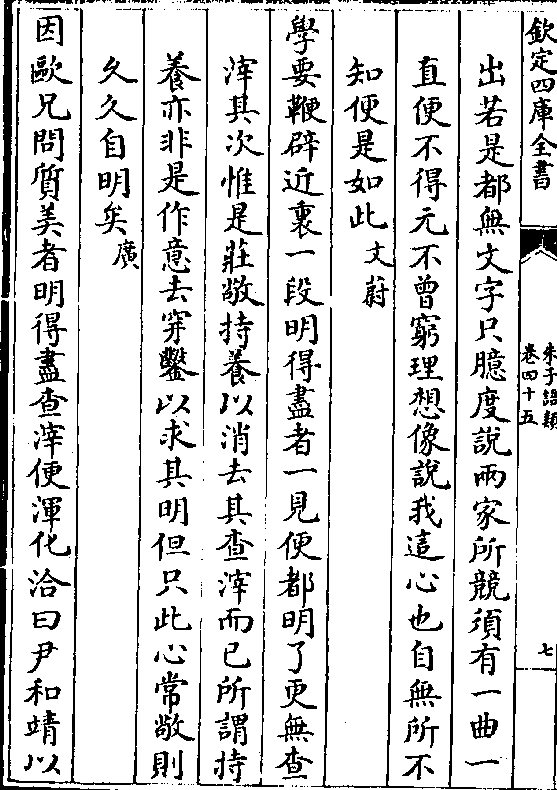 欽定四庫全書
朱子語類
卷四十五
七
出若是都無文字只臆度說兩家所競須有一曲一
直便不得元不曾窮理想像說我這心也自無所不
知便是如此文蔚
學要鞭辟近裏一段明得盡者一見便都明了更無查
滓其次惟是莊敬持養以消去其查滓而已所謂持
養亦非是作意去穿鑿以求其明但只此心常敬則
久久自明矣廣
因歐兄問質美者明得盡查滓便渾化洽曰尹和靖以